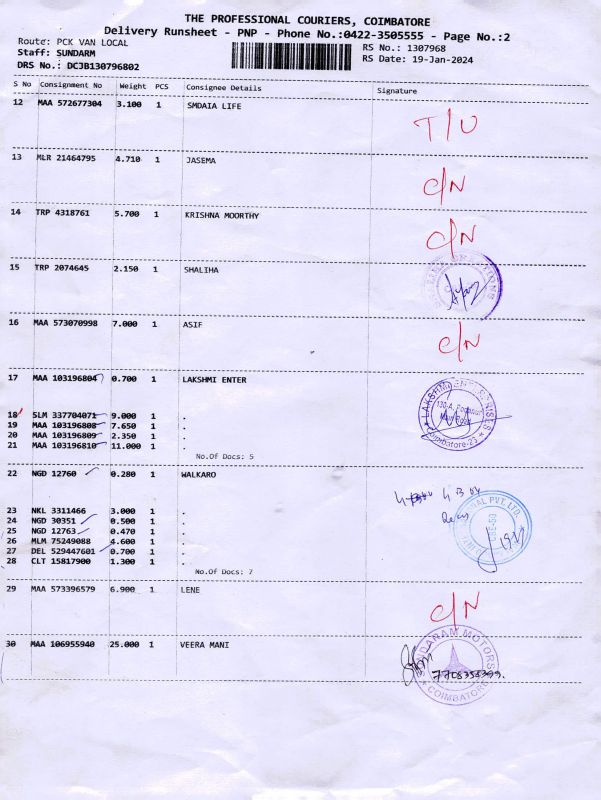 THE PROFESSIONAL COURIERS, COIMBATORE
Delivery Runsheet - PNP - Phone No.:0422-3505555 - Page No.:2
Route: PCK VAN LOCAL
RS No.: 1307968
Staff: SUNDARM
RS Date: 19-Jan-2024
DRS No.: DCJB130796802
S No Consignment No Weight PCS Consignee Details Signature
12 MAA 572677304 3.100 1 SMDAIA LIFE
T/U
13 MLR 21464795 4.710 1 JASEMA
C/N
14 TRP 4318761 5.700 1 KRISHNA MOORTHY
C/N
15 TRP 2074645 2.150 1 SHALIHA
16 MAA 573070998 7.000 1 ASIF
C/N
17 MAA 103196804 0.700 1 LAKSHMI ENTER
18 SLM 337704071 9.000 1 .
19 MAA 103196808 7.650 1 .
20 MAA 103196809 2.350 1 .
21 MAA 103196810 11.000 1 .
No.Of Docs: 5
LAKSHMI ENTERPRISES
Coimbatore-23
22 NGD 12760 0.280 1 WALKARO
23 NKL 3311466 3.000 1 .
24 NGD 30351 0.500 1 .
25 NGD 12763 0.470 1 .
26 MLM 75249088 4.600 1 .
27 DEL 529447601 0.700 1 .
28 CLT 15817900 1.300 1 .
No.Of Docs: 7
PVT. LTD.
29 MAA 573396579 6.900 1 LENE
C/N
30 MAA 106955940 25.000 1 VEERA MANI
SUNDARAM MOTORS
COIMBATORE